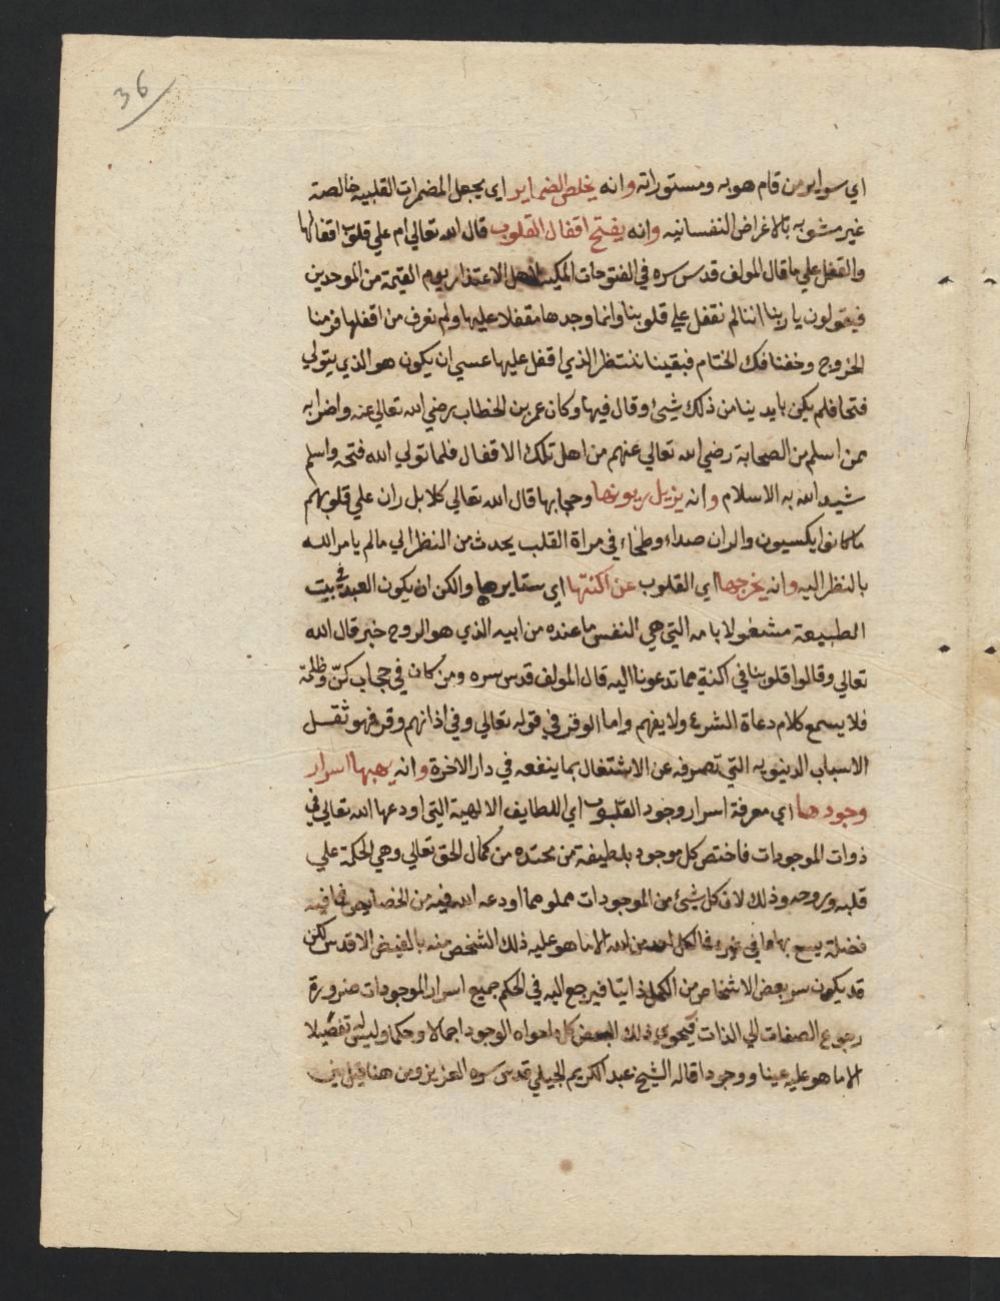 36
اي سراير من قام هو به ومستوراته وانه يخلص الضماير اي يجعل المضمرات القلبية خالصة
غير مشوبه بالاغراض النفسانيه وانه يفتح اقفال القلوب قال الله تعالي ام علي قلوب اقفالها
والقفل علي ما قال المولف قدس سره في الفتوحات المكيه لاهل الاعتذار يوم القيمة من الموحدين
فيقولون يا ربنا اننا لم نقفل علي قلوبنا وانما وجدها مقفلا عليها ولم نعرف من اقفلها فرمنا
الخروج وخفنا فك الختام فبقينا ننتظر الذي اقفل عليها عسي ان يكون هو الذي يتولي
فتحا فلم يكن بايدينا من ذلك شيئ وقال فيها وكان عمر بن الخطاب رضي الله تعالي عنه واضرابه
ممن اسلم من الصحابة رضي الله تعالي عنهم من اهل تلك الاقفال فلما تولي الله فتحه واسلم
شيد الله به الاسلام وانه يزيل ريونها وحجابها قال الله تعالي كلا بل ران علي قلوبهم
ما كانوا يكسبون والران صداء وطخاء في مراة القلب يحدث من النظر الي ما لم يامر الله
بالنظر اليه وانه يخرجها اي القلوب عن اكنتها اي ستايرها والكن ان يكون العبد في بيت
الطبيعة مشغولا بامه التي هي النفس ما عنده من ابيه الذي هو الروح خبر قال الله
تعالي وقالوا قلوبنا في اكنة مما تدعونا اليه قال المولف قدس سره ومن كان في حجاب كنّ وظلمة
فلا يسمع كلام دعاة الشرع ولا يفهم واما الوقر في قوله تعالي وفي اذانهم وقر فهو ثقل
الاسباب الدينويه التي تصرفه عن الاشتغال بما ينفعه في دار الاخرة وانه يهبها اسرار
وجودها اي معرفة اسرار وجود القلوب اي اللطايف الالهية التي اودعها الله تعالي في
ذوات الموجودات فاختص كل موجود بلطيفة من محتده من كمال الحق تعالي وهي الحكمة علي
قلبه وروحه وذلك لان كل شيئ من الموجودات مملو مما اودعه الله فيه من الخصايص فما فيه
فضلة يسع بها ما في غيره فما لكل احد من الله الا ما هو عليه ذلك الشخص منه بالفيض الاقدس لكن
قد يكون سر بعض الاشخاص من الكمل ذاتيا فيرجع اليه في الحكم جميع اسرار الموجودات ضرورة
رجوع الصفات الي الذات فيحوي ذلك البعض كل ما حواه الوجود اجمالا وحكما وليس له تفصيلا
الا ما هو عليه عينا ووجودا قاله الشيخ عبد الكريم الجيلي قدس سره العزيز ومن هنا قيل